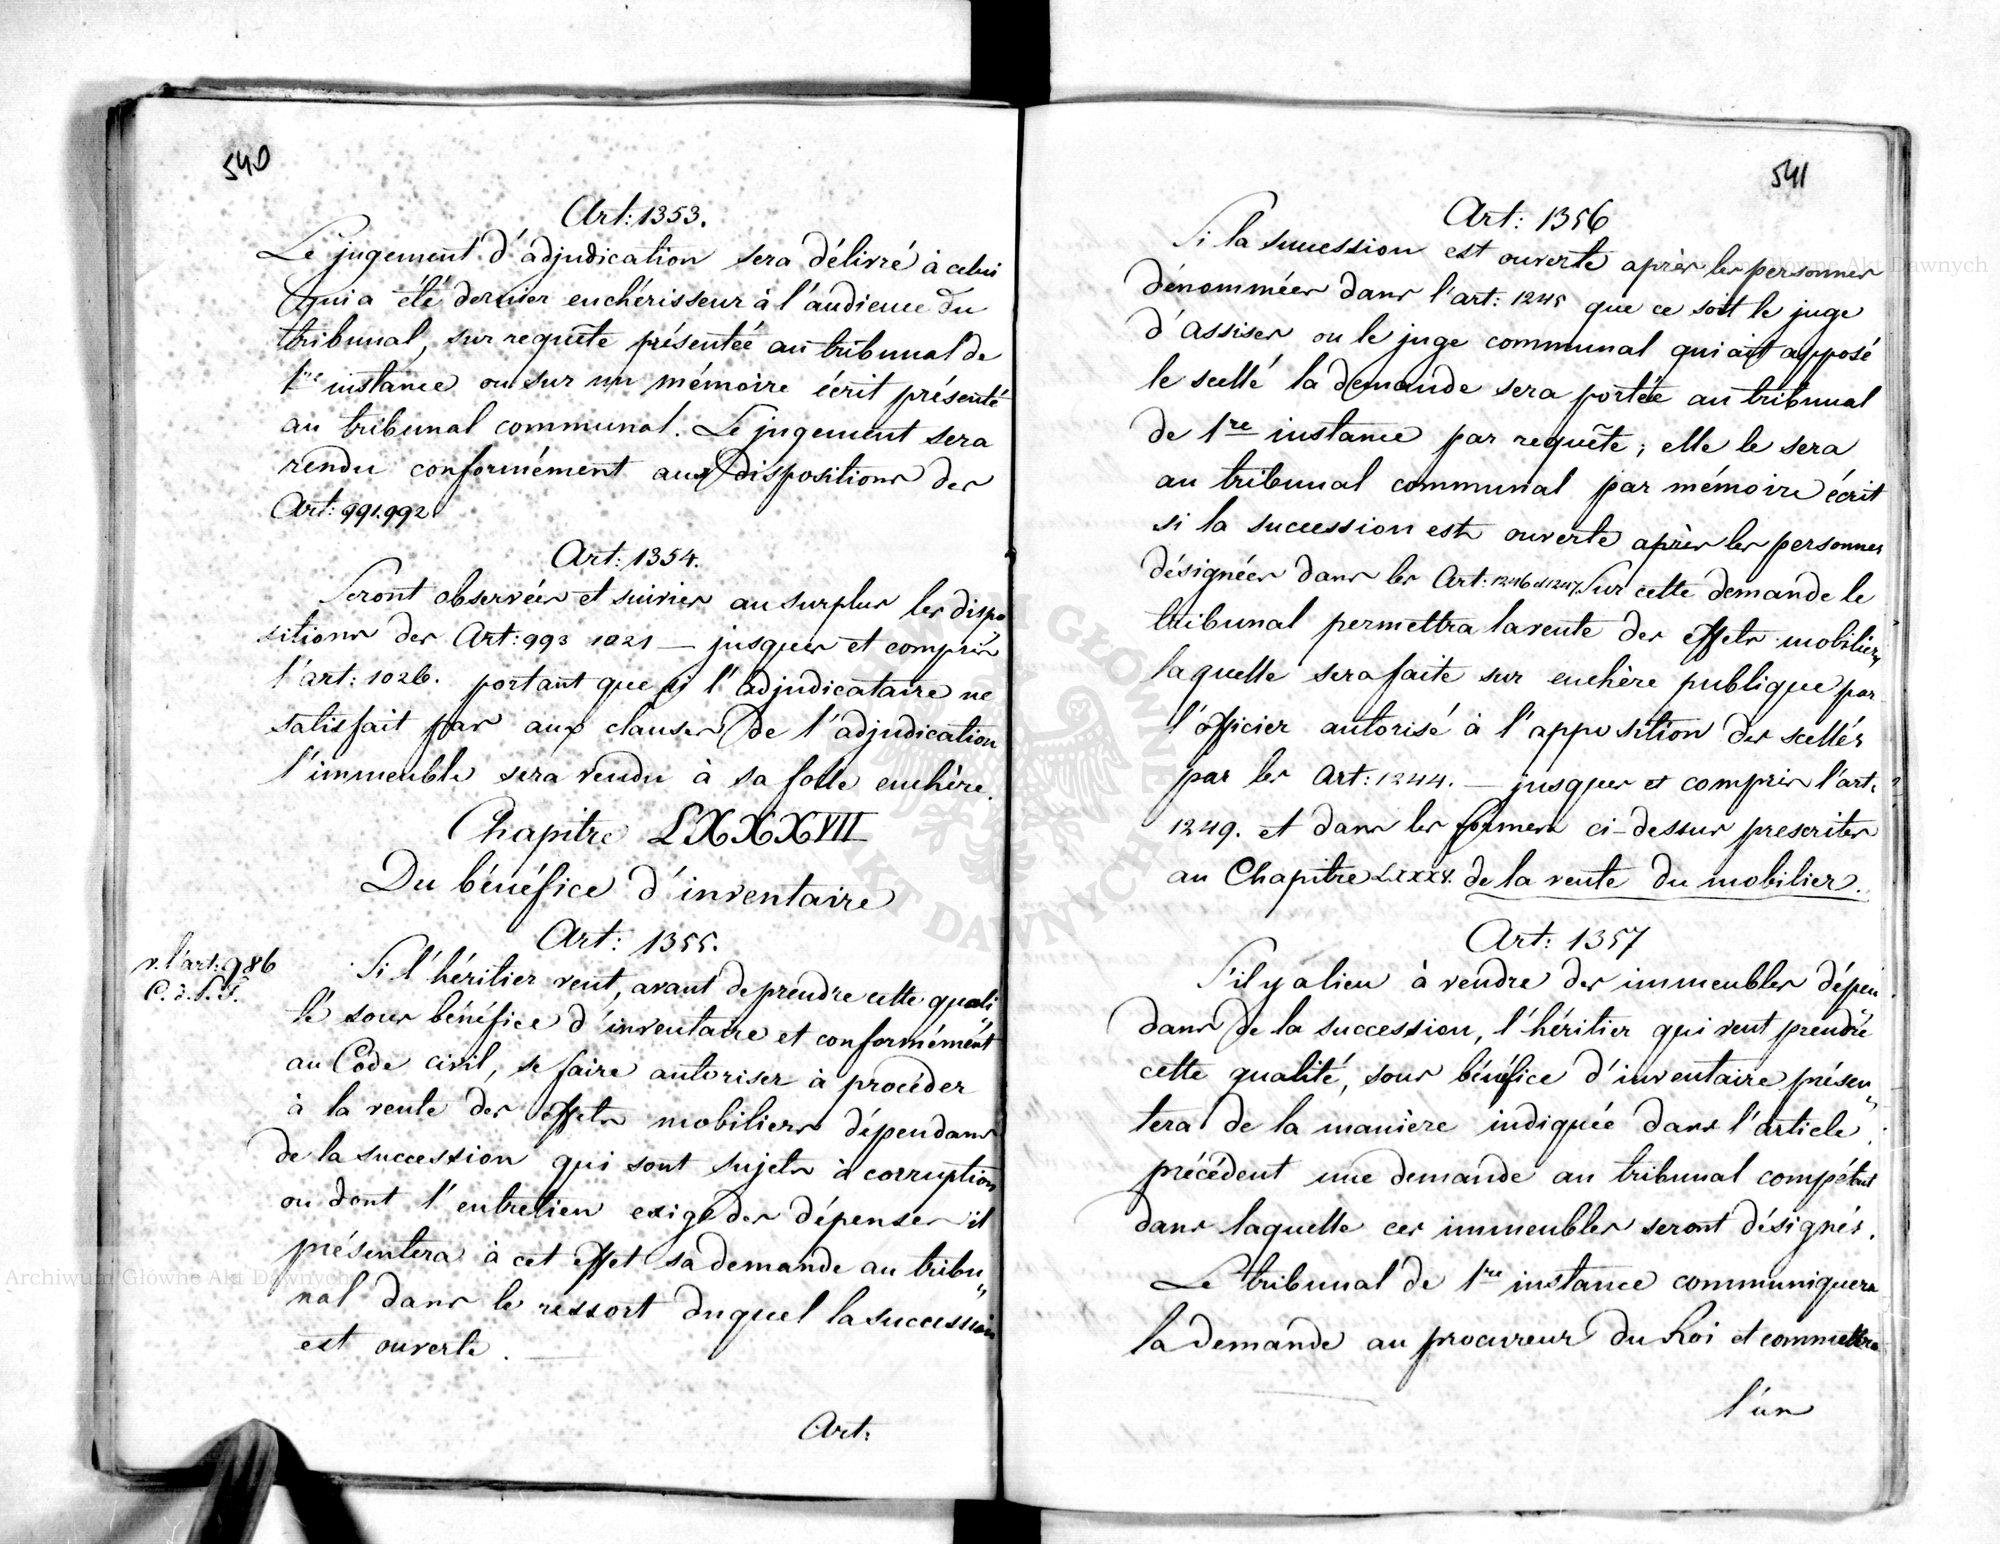 540
Art: 1353.
Le jugement d'adjudication sera délivré à celui
qui a été dernier enchérisseur à l'audience du
tribunal, sur requête présentée au tribunal de
1re instance ou sur un mémoire écrit présenté
au tribunal communal. Le jugement sera
rendu conformément aux dispositions des
Art: 991.992.
Art: 1354.
Seront observées et suivies au surplus les dispo
sitions des Art: 993 1021 — jusques et compris
l'art: 1026. portant que si l'adjudicataire ne
satisfait pas aux clauses de l'adjudication
l'immeuble sera vendu à sa folle enchère.
Chapitre LXXXVII
Du bénéfice d'inventaire
Art: 1355.
v. l'art: 986
C. d. P. F.
Si l'héritier veut, avant de prendre cette quali„
té sous bénéfice d'inventaire et conformément
au Code civil, se faire autoriser à procéder
à la vente des effets mobiliers dépendans
de la succession qui sont sujets à corruption
ou dont l'entretien exige des dépenses il
présentera à cet effet sa demande au tribu„
nal dans le ressort duquel la succession
est ouverte. —
Art:
541
Art: 1356
Si la succession est ouverte après les personnes
dénommées dans l'art: 1245 que ce soit le juge
d'assises ou le juge communal qui ait apposé
le scellé la demande sera portée au tribunal
de 1re instance par requête; elle le sera
au tribunal communal par mémoire écrit
si la succession est ouverte après les personnes
désignées dans les Art: 1246 et 1247. Sur cette demande le
tribunal permettra la vente des effets mobiliers
laquelle sera faite sur enchère publique par
l'officier autorisé à l'apposition des scellés
par les Art: 1244. — jusques et compris l'art:
1249. et dans les formes ci-dessus prescrites
au Chapitre LXXXV. de la vente du mobilier.
Art: 1357
S'il y a lieu à vendre des immeubles dépen
dans de la succession, l'héritier qui veut prendre
cette qualité, sous bénéfice d'inventaire présen„
tera de la manière indiquée dans l'article
précédent une demande au tribunal compétent
dans laquelle ces immeubles seront désignés.
Le tribunal de 1re instance communiquera
la demande au procureur du Roi et commettra
l'un
Archiwum Główne Akt Dawnych
Archiwum Główne Akt Dawnych